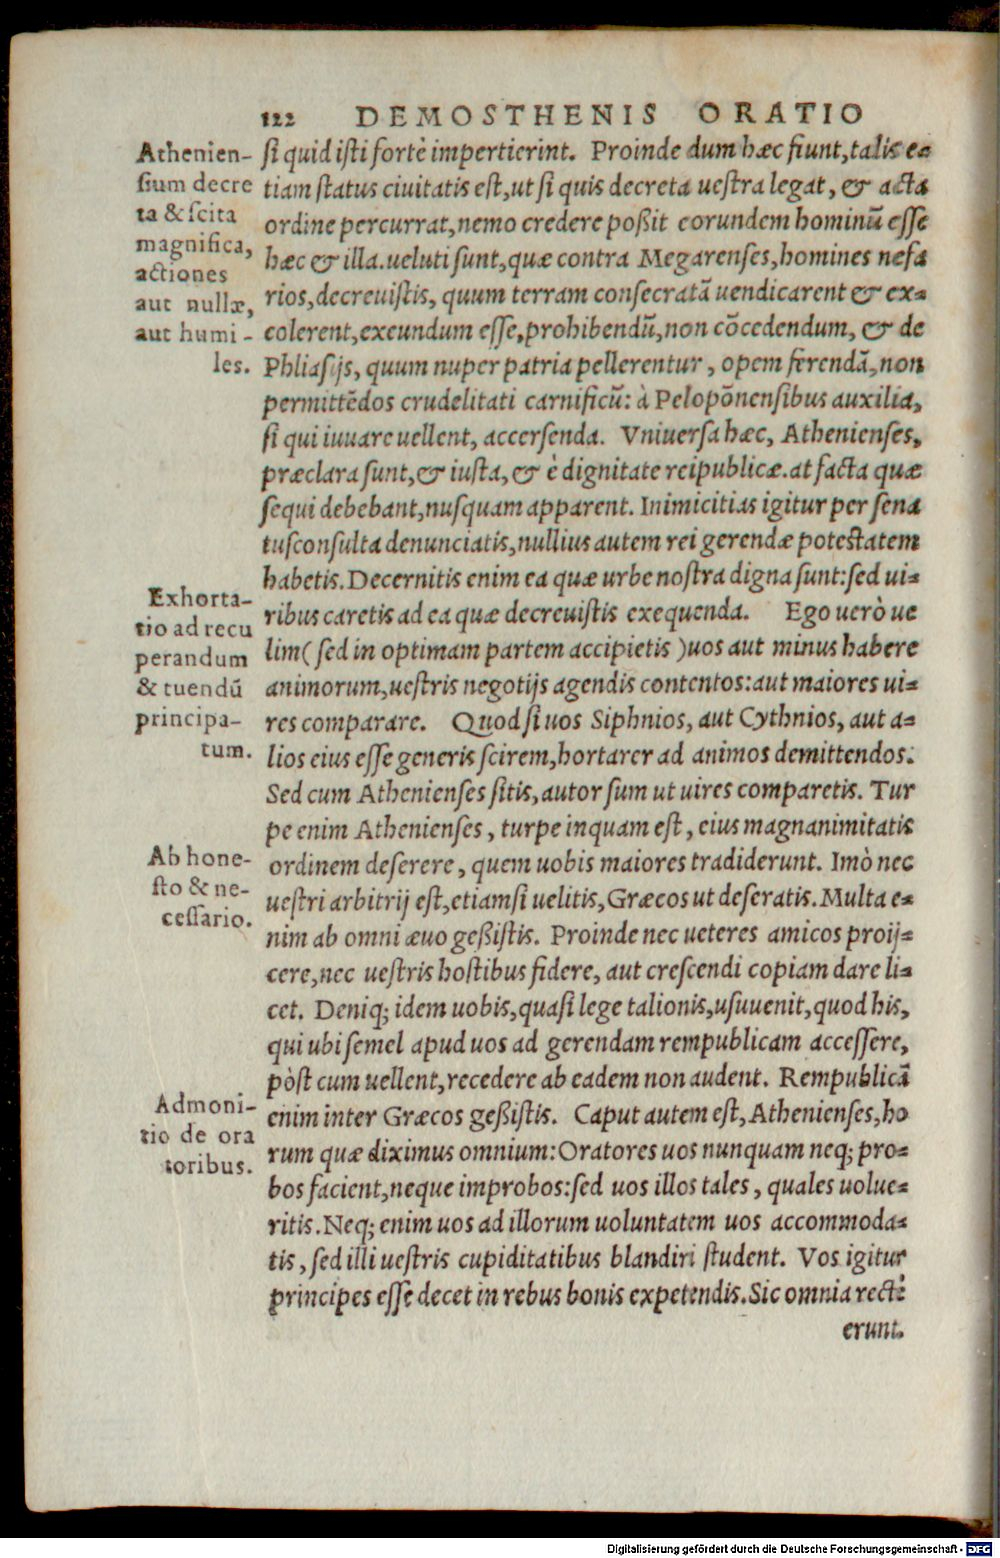 122 DEMOSTHENIS ORATIO
Athenien-
sium decre
ta & scita
magnifica,
actiones
aut nullæ,
aut humi-
les.
si quid isti fortè impertierint. Proinde dum hæc fiunt, talis e=
tiam status ciuitatis est, ut si quis decreta uestra legat, & acta
ordine percurrat, nemo credere poßit eorundem hominū esse
hæc & illa. ueluti sunt, quæ contra Megarenses, homines nefa
rios, decreuistis, quum terram consecratā uendicarent & ex=
colerent, exeundum esse, prohibendū, non cōcedendum, & de
Phliasijs, quum nuper patria pellerentur, opem ferendā, non
permittēdos crudelitati carnificū: à Pelopōnensibus auxilia,
si qui iuuare uellent, accersenda. Vniuersa hæc, Athenienses,
præclara sunt, & iusta, & è dignitate reipublicæ. at facta quæ
sequi debebant, nusquam apparent. Inimicitias igitur per sena
tusconsulta denunciatis, nullius autem rei gerendæ potestatem
habetis. Decernitis enim ea quæ urbe nostra digna sunt: sed ui=
Exhorta-
tio ad recu
perandum
& tuendū
principa-
tum.
ribus caretis ad ea quæ decreuistis exequenda. Ego uerò ue
lim (sed in optimam partem accipietis) uos aut minus habere
animorum, uestris negotijs agendis contentos: aut maiores ui=
res comparare. Quod si uos Siphnios, aut Cythnios, aut a=
lios eius esse generis scirem, hortarer ad animos demittendos:
Sed cum Athenienses sitis, autor sum ut uires comparetis. Tur
pe enim Athenienses, turpe inquam est, eius magnanimitatis
Ab hone-
sto & ne-
cessario.
ordinem deserere, quem uobis maiores tradiderunt. Imò nec
uestri arbitrij est, etiamsi uelitis, Græcos ut deseratis. Multa e=
nim ab omni æuo geßistis. Proinde nec ueteres amicos proij=
cere, nec uestris hostibus fidere, aut crescendi copiam dare li=
cet. Deniq; idem uobis, quasi lege talionis, usuuenit, quod his,
qui ubi semel apud uos ad gerendam rempublicam accessere,
pòst cum uellent, recedere ab eadem non audent. Rempublicā
Admoni-
tio de ora
toribus.
enim inter Græcos geßistis. Caput autem est, Athenienses, ho
rum quæ diximus omnium: Oratores uos nunquam neq; pro=
bos facient, neque improbos: sed uos illos tales, quales uolue=
ritis. Neq; enim uos ad illorum uoluntatem uos accommoda=
tis, sed illi uestris cupiditatibus blandiri student. Vos igitur
principes esse decet in rebus bonis expetendis. Sic omnia rectè
erunt.
Digitalisierung gefördert durch die Deutsche Forschungsgemeinschaft - DFG